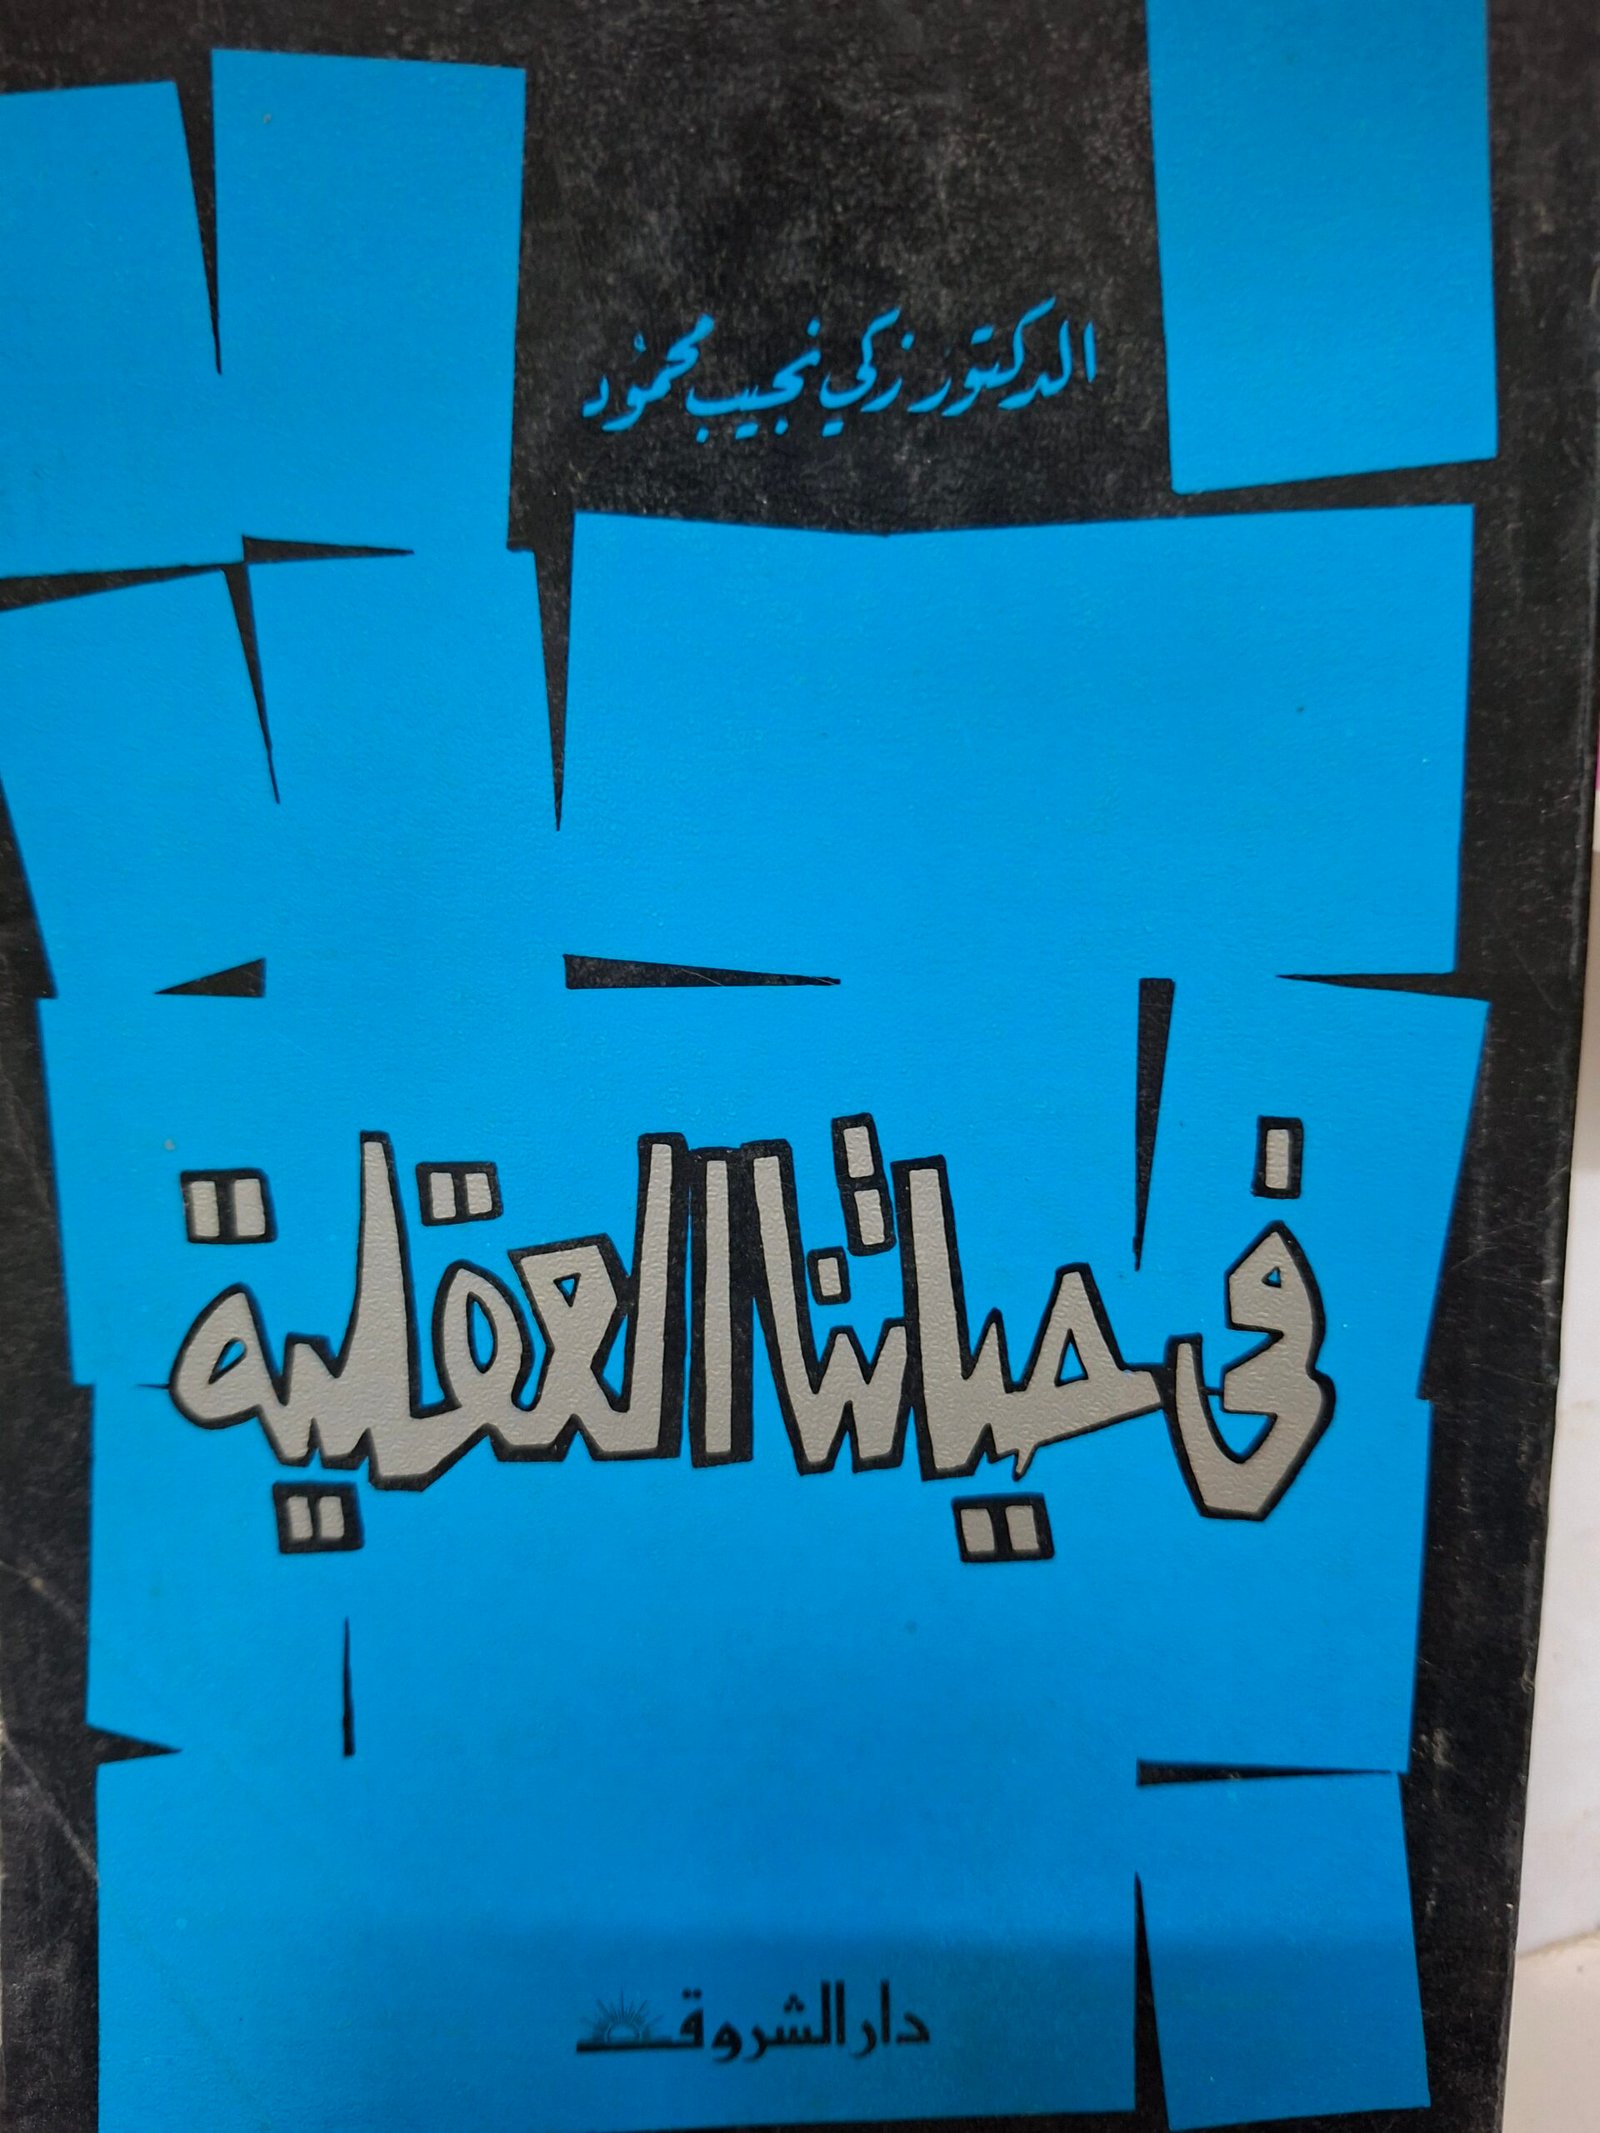 الدكتور زكي نجيب محمود
في حياتنا العقلية
دار الشروق